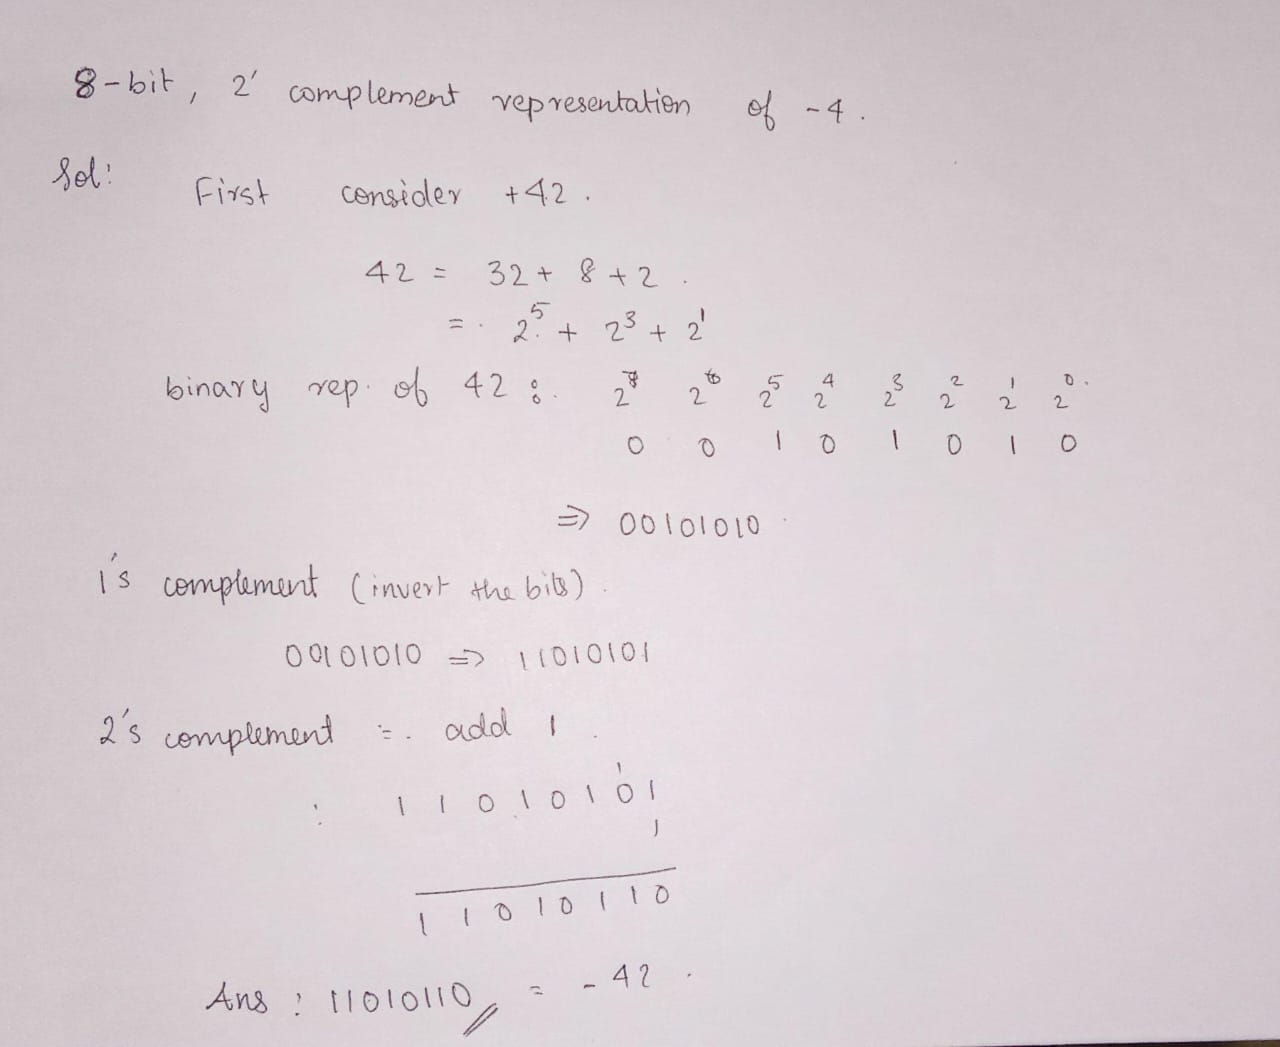 8-bit, 2' complement representation of -4.
Sol: First consider +42.
42 = 32 + 8 + 2.
= 2⁵ + 2³ + 2¹
binary rep. of 42 : 2⁷ 2⁶ 2⁵ 2⁴ 2³ 2² 2¹ 2⁰
0 0 1 0 1 0 1 0
⇒ 00101010
1's complement (invert the bits).
00101010 ⇒ 11010101
2's complement = add 1.
1
: 1 1 0 1 0 1 0 1
1
1 1 0 1 0 1 1 0
Ans : 11010110 = -42.